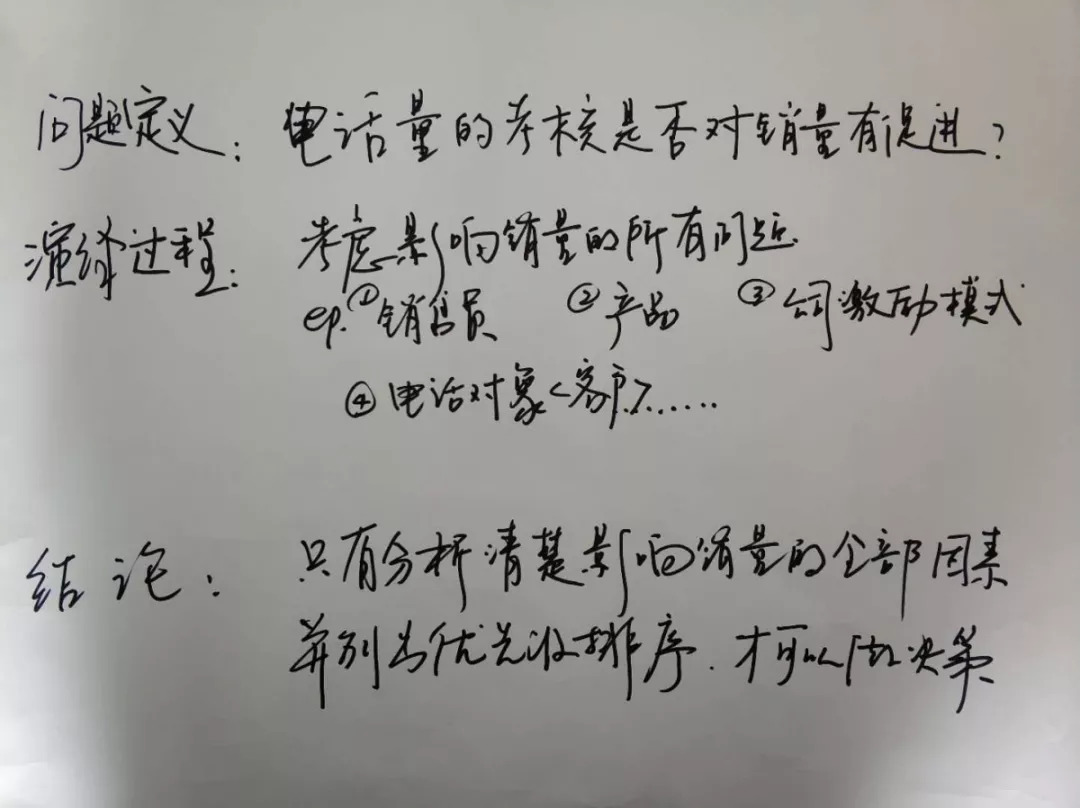 问题定义：电话量的考核是否对销量有促进？
演绎过程：考虑影响销量的所有问题
ep.①销售员 ②产品 ③公司激励模式
④电话对象<客户>……
结论：只有分析清楚影响销量的全部因素
并列出优先级排序.才可以做决策